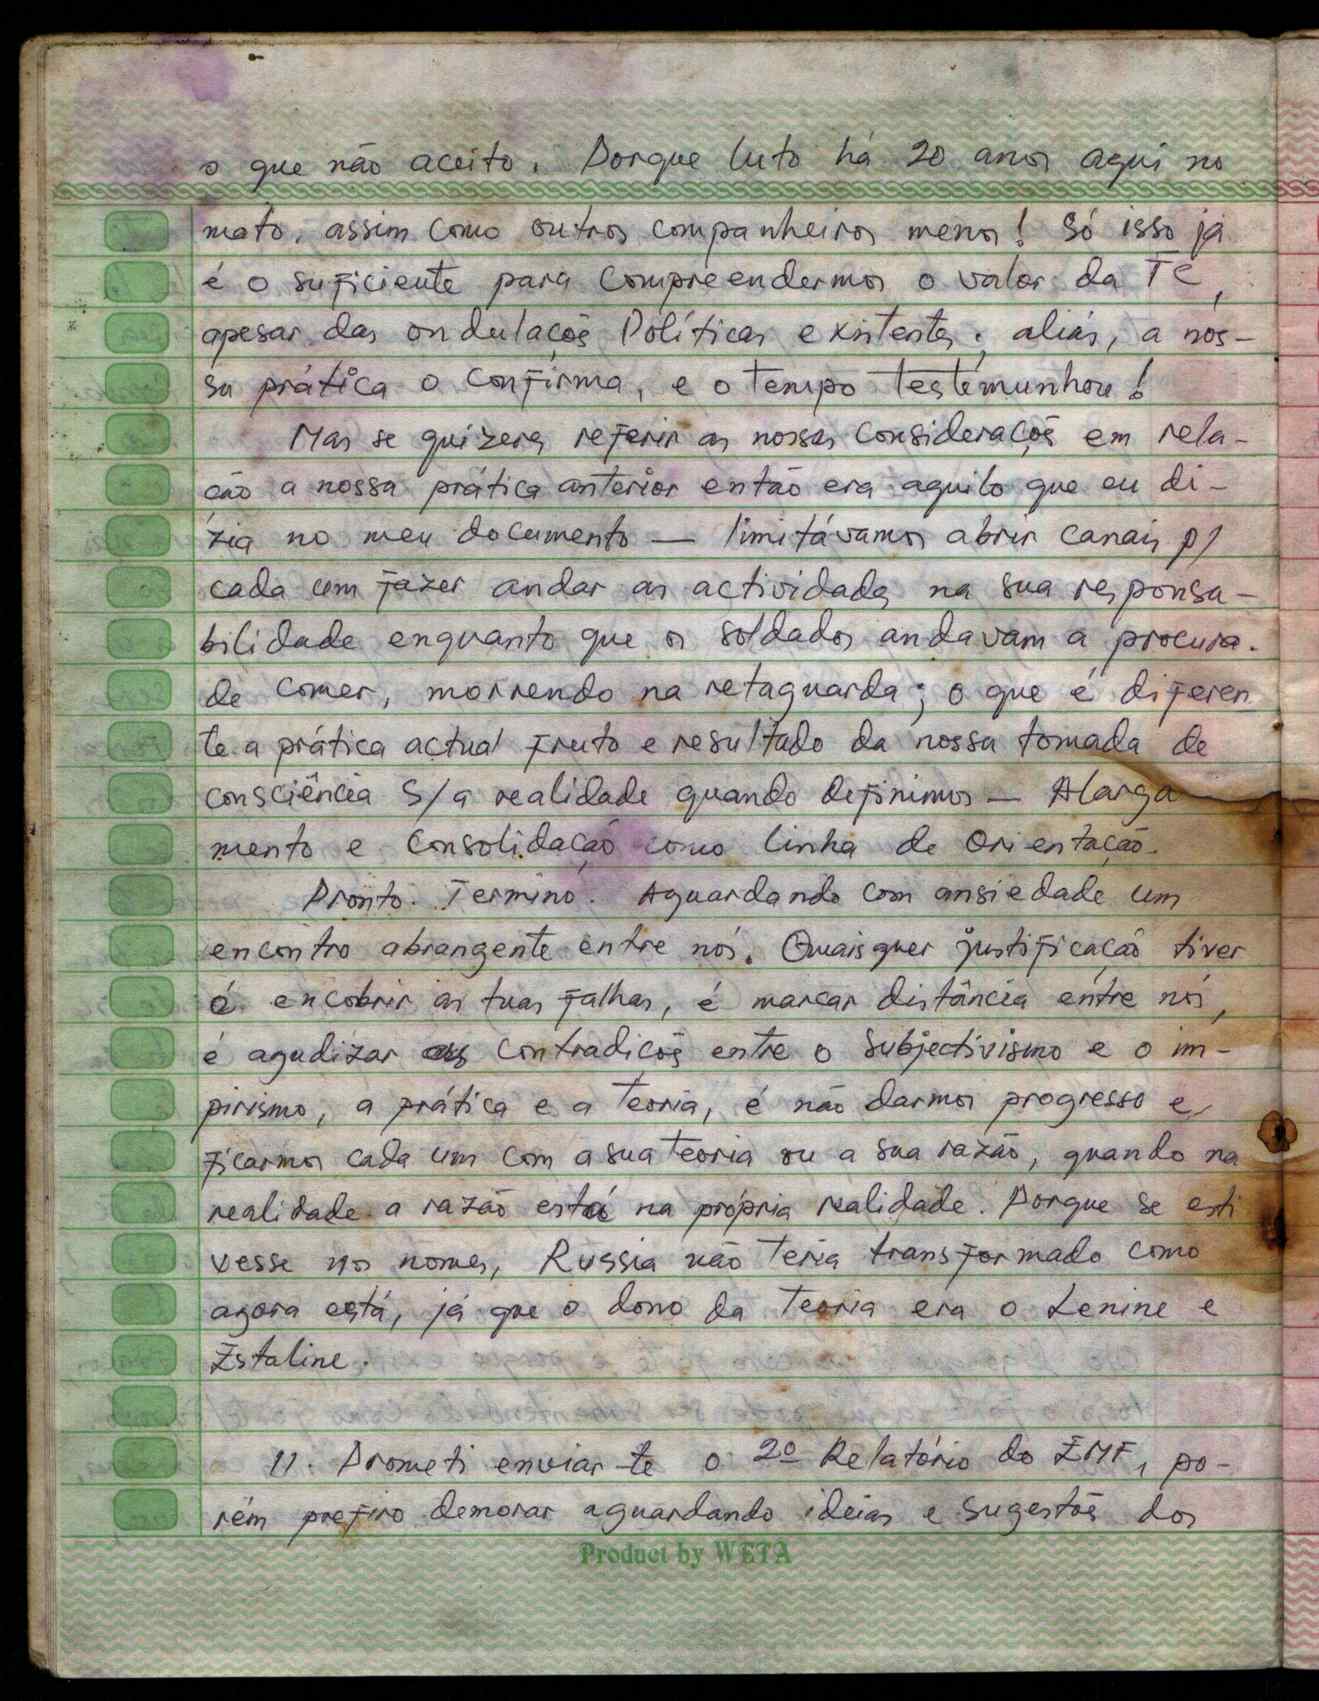 o que não aceito. Porque luto há 20 anos aqui no
mato, assim como outros companheiros menos! Só isso já
é o suficiente para compreendermos o valor da TC,
apesar das ondulações Políticas existentes; aliás, a nos-
sa prática o confirma, e o tempo testemunhou!
Mas se quizeres referir as nossas considerações em rela-
ção a nossa prática anterior então era aquilo que eu di-
zia no meu documento — limitávamos abrir canais p/
cada um fazer andar as actividades na sua responsa-
bilidade enquanto que os soldados andavam a procura.
de comer, morrendo na retaguarda; o que é diferen
te a prática actual fruto e resultado da nossa tomada de
consciência S/a realidade quando definimos — Alarga
mento e consolidação como linha de Orientação.
Pronto. Termino. Aguardando com ansiedade um
encontro abrangente entre nós. Quaisquer justificação tiver
é encobrir as tuas falhas, é marcar distância entre nós,
é agudizar as contradicões entre o subjectivismo e o im-
pirismo, a prática e a teoria, é não darmos progresso e
ficarmos cada um com a sua teoria ou a sua razão, quando na
realidade a razão está na própria realidade. Porque se esti
vesse nos nomes, Russia não teria transformado como
agora está, já que o dono da teoria era o Lenine e
Estaline.
11. Prometi enviar-te o 2º Relatório do EMF, po-
rém prefiro demorar aguardando ideias e sugestões dos
Product by WETA